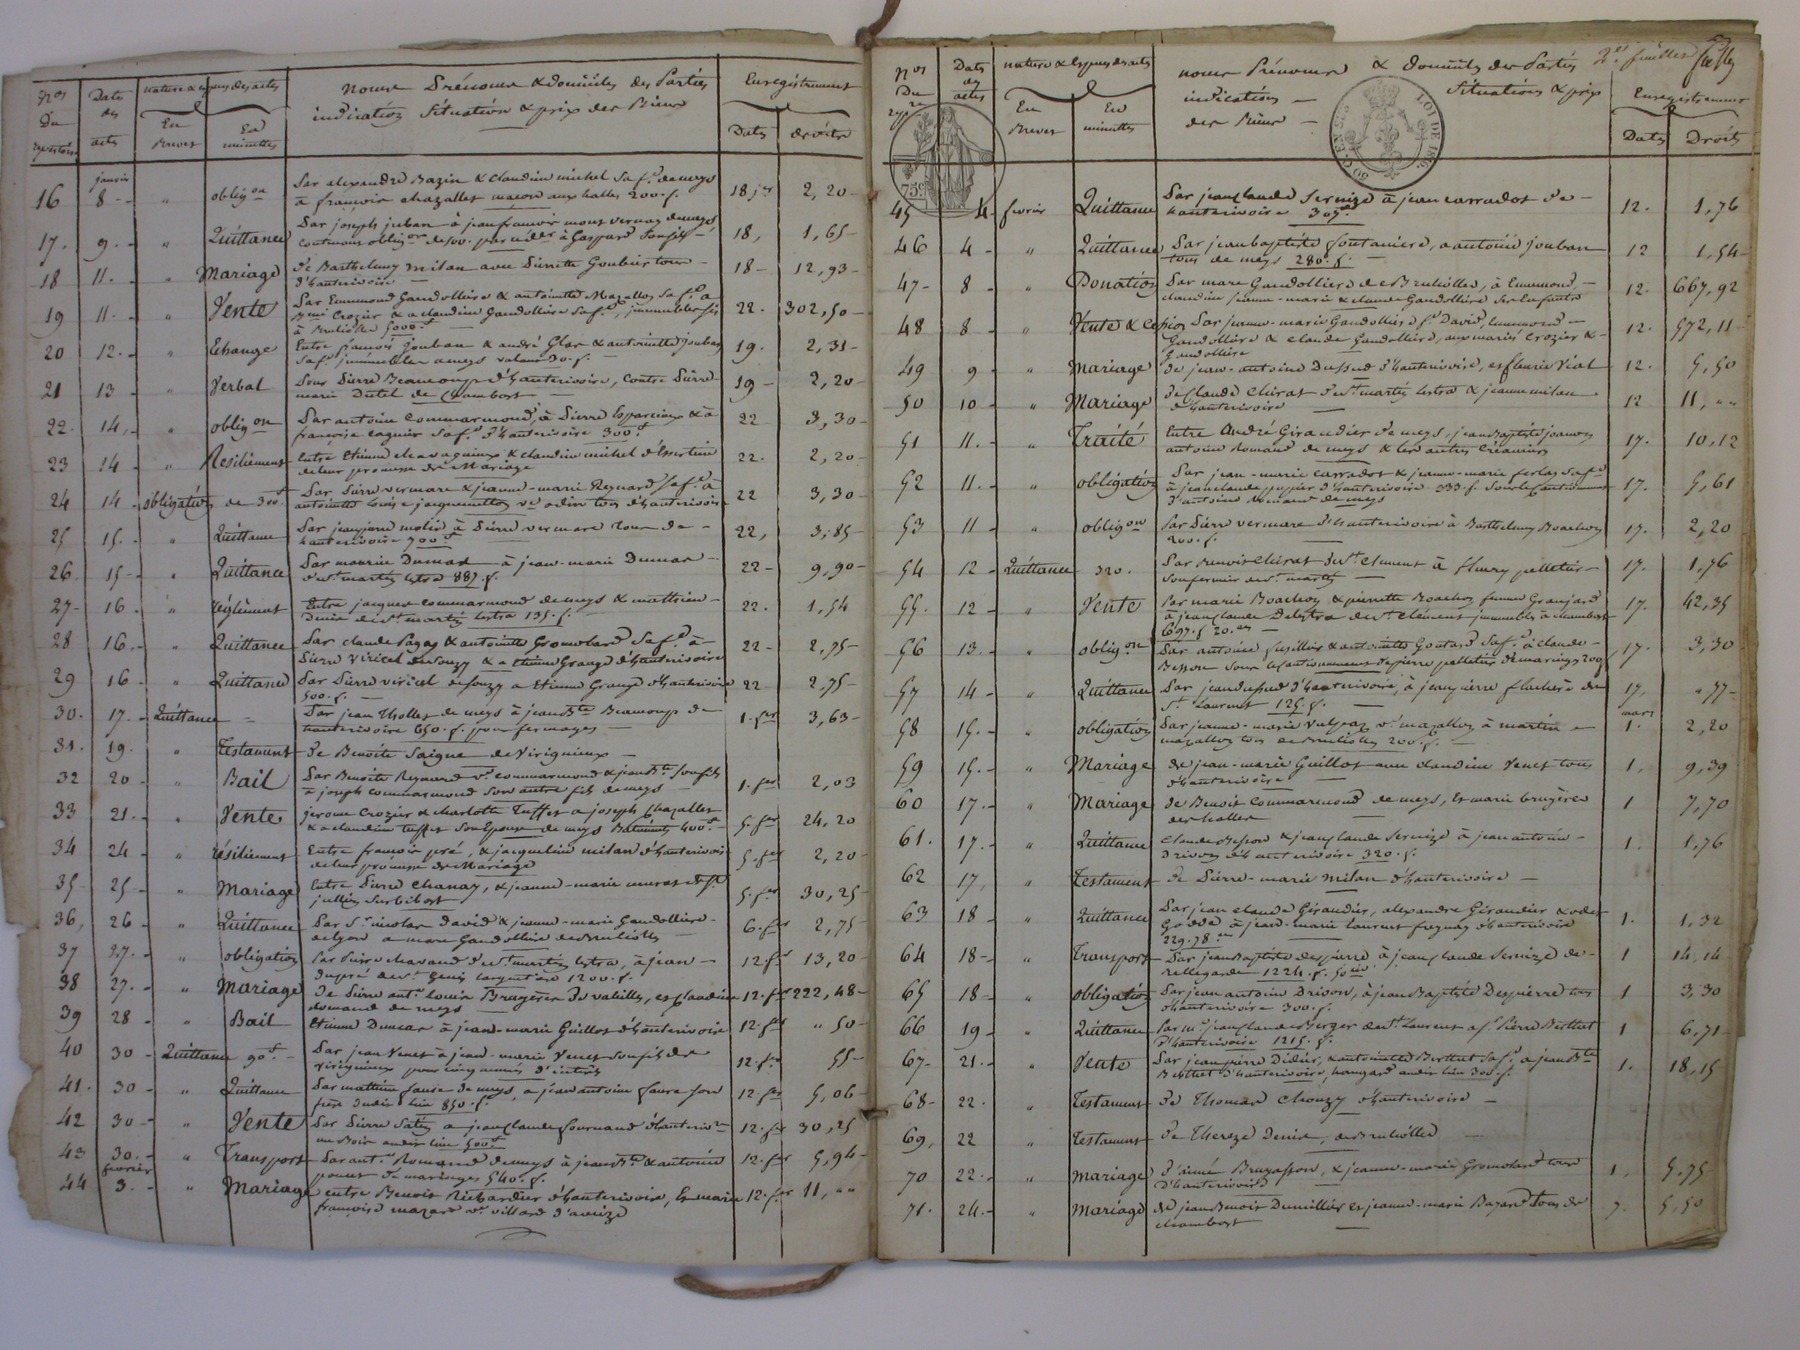 Nos Du repertoire
Dates des actes
nature & especes des actes
En Brevet
En minuttes
noms Prénoms & domiciles des Parties
indication Situation & prix des Biens
Enregistrement
Dates
droits
janvier
16 8 " oblig.on Par alexandre Bazin & claudine michel sa f.e de meys 18 j.er 2,20
à françois chazallet maçon aux halles 200.f.
17. 9. " Quittance Par joseph juban à jean françois de meys 18, 1,65
18 11. " Mariage De Barthelemy milan avec Pierrette Goubier tous 18 12,93
d'hauterivoire
19 11. " Vente Par Emmemond Gaudollière & antoinette Mazallon sa f.e a 22. 302,50
Remi Crozier & a claudine Gaudollière sa f.e, immeubles sis
à Brulioles 5000 f
20 12. " Echange Entre françois Jouban & andré Glas & antoinette Jouban 19. 2,31
sa f.e immeubles a meys valant 30.f.
21 13 " Verbal Pour Pierre Beaucoup d'hauterivoire, Contre Pierre 19 2,20
marie Dutel de Chambost
22. 14. " oblig.on Par antoine Commarmond, à Pierre & à 22 3,30
françoise sa f.e d'hauterivoire 300 f
23 14 " Resiliement Entre Etienne chavagneux & claudine michel d' 22. 2,20
de leur promesse de Mariage
24 14 obligation de 300 f Par Pierre vermare & jeanne-marie Reynard sa f.e à 22 3,30
antoinette Louise jacquemetton v.e odin tous d'hauterivoire
25 15. " Quittance Par jean pierre molin à Pierre vermare tous de 22, 3,85
hauterivoire 700 f
26 15 " Quittance Par maurice Dumas à jean-marie Dumas 22 9,90
de st martin lestra 887.f.
27 16. " réglement Entre jacques commarmond de meys & mathieu 22. 1,54
Denis de st martin lestra 135.f.
28 16. " Quittance Par claude Pagay & antoinette Gromolard sa f.e à 22 2,75
Pierre Viricel de Souzy & a Etienne Grange d'hauterivoire
29 16 " Quittance Par Pierre viricel de souzy a Etienne Grange d'hauterivoire 22 2,75
500.f.
30. 17. Quittance Par jean Thollet de meys à jean B.te Beaucoup de 1.fer 3,63
hauterivoire 650.f. pour fermages
31. 19. " Testament De Benoite Saigne de Virigneux
32 20 " Bail Par Benoite Reynard v.e commarmond & jean B.te son fils 1.fer 2,03
à joseph commarmond son autre fils de meys
33 21. " Vente jerome Crozier & charlotte Tuffet a joseph Chazallet 5.fer 24,20
& a claudine tuffet son Epouse de meys Batiments 400 f
34 24 " résiliement Entre françois pré, & jacqueline milan d'hauterivoire 5.fer 2,20
de leur promesse de Mariage
35 25 " Mariage Entre Pierre chanay, & jeanne-marie murat de st 5.fer 30,25
jullien sur bibost
36, 26 " Quittance Par S.r nicolas David & jeanne-marie Gaudollière 6.fer 2,75
de lyon a marc Gaudollière de Brulioles
37 27. " obligation Par Pierre chavand de st martin lestra, à jean 12.f.r 13,20
dupré de st Genis l'argentière 1200.f.
38 27. " Mariage De Pierre ant.e louis Brugères de valeilles, et Claudine 12.fer 222,48
domand de meys
39 28 " Bail Etienne Dumas à jean-marie Guillot d'hauterivoire 12.fer " 50
40 30 Quittance 90 f Par jean Venet à jean-marie Venet son fils de 12.fer 55
virigneux pour cinq années d'intérêts
41. 30 " Quittance Par mathieu faure de meys, a jean antoine faure son 12.fer 5,06
frère dudit lieu 850.f
42 30 " Vente Par Pierre a jean Claude fournand d'hauteriv.re 12.fer 30,25
un Bois audit lieu 500 f
43 30. " Transport Par ant.e Romand de meys à jean B.te & antoine 12.fer 5,94
de maringes 540.f.
fevrier
44 3. " Mariage entre Benoit Richardier d'hauterivoire, Et marie 12.fer 11, ""
françoise mazard v.e villard d'aveize
Nos Du re
Dates des actes
nature & especes des actes
En Brevet
En minuttes
noms Prénoms & domiciles des Parties
indication Situation & prix
des Biens
2.e feuillet
Enregistrement
Dates
Droits
75c
LOI DE 1816.
45 4. fevrier Quittance Par jean Claude Servize à jean carradot de 12. 1,76
hauterivoire 305 f
46 4 " Quittance Par jean baptiste fontaniere, a antoine jouban 12 1,54
tous de meys 280.f.
47 8 " Donation Par marc Gaudollière de Brulioles, à Emmemond, 12. 667,92
claudine jeanne-marie & claude Gaudollière ses Enfants
48 8 " Vente & Cession Par jeanne-marie Gaudollière f.e David, Emmemond 12. 572,11
Gaudollière & claude Gaudollière, aux mariés Crozier &
Gaudollière
49 9 " Mariage De jean-antoine Dussud d'hauterivoire, et fleurie Vial 12. 5,50
50 10 " Mariage De Claude Chirat de st martin lestra & jeanne milan 12 11, ""
d'hauterivoire
51 11. " Traité Entre André Giraudier de meys, jean Baptiste joannon 17. 10,12
antoine Romand de meys & les autres Créanciers
52 11. " obligation Par jean-marie carradot & jeanne-marie ferlay sa f.e 17. 5,61
à jean claude d'hauterivoire 333.f. sous le Cautionnement
d'antoine de meys
53 11 " oblig.on Par Pierre vermare d'hauterivoire à Barthelemy Boachon 17. 2,20
200.f.
54 12 Quittance 320. Par Benoit Chirat de st clement à fleury pelletier 17. 1,76
son fermier de st martin
55. 12 " Vente Par marie Boachon & pierrette Boachon femme Granjard 17. 42,35
à jean Claude Delestra de st clément immeubles à chambost
697.f 20.es
56 13. " oblig.on Par antoine fusillier & antoinette Goutard sa f.e à claude 17. 3,30
Besson sous le Cautionnement de pierre pelletier de maringes 200 f
57 14 " Quittance Par jean Dussud d'hauterivoire, à jean pierre flachère de 17, " 77
St Laurent 125.f.
mars
58 15. " obligation Par jeanne-marie v.e mazallon à martin 1. 2,20
mazallon tous de Brulioles 200.f.
59 15. " Mariage De jean-marie Guillot avec claudine Venet tous 1, 9,39
d'hauterivoire
60 17. " Mariage De Benoit Commarmond de meys, Et marie bruyères 1 7,70
des halles
61. 17. " Quittance Claude Besson & jean Claude Servize à jean antoine 1. 1,76
Drivon d'hauterivoire 320.f.
62 17, " Testament De Pierre-marie milan d'hauterivoire
63 18 " Quittance Par jean claude Giraudier, alexandre Giraudier & 1. 1,32
à jean-marie laurent d'hauterivoire
229.78.es
64 18 " Transport Par jean Baptiste despierre à jean Claude Servize de 1 14,14
bellegarde 1224.f. 50 es
65 18 " obligation Par jean antoine Drivon, à jean Baptiste Despierre tous 1 3,30
d'hauterivoire 300.f.
66 19 " Quittance Par m.e jean Claude Berger de st Laurent a s.r Pierre Berthet 1 6,71
d'hauterivoire 1215.f.
67 21. " Vente Par jean pierre Didier, & antoinette Berthet sa f.e a jean B.te 1. 18,15
Berthet d'hauterivoire, audit lieu 300.f.
68 22. " Testament De Thomas Chouzy d'hauterivoire
69, 22 " Testament De Thereze Denis, de Brulioles
70 22. " Mariage D'aimé Bruyasson, & jeanne-marie Gromolard tous 1. 5,75
D'hauterivoire
71. 24. " Mariage De jean Benoit Dumillier et jeanne-marie Bazard tous de 7. 5,50
chambost